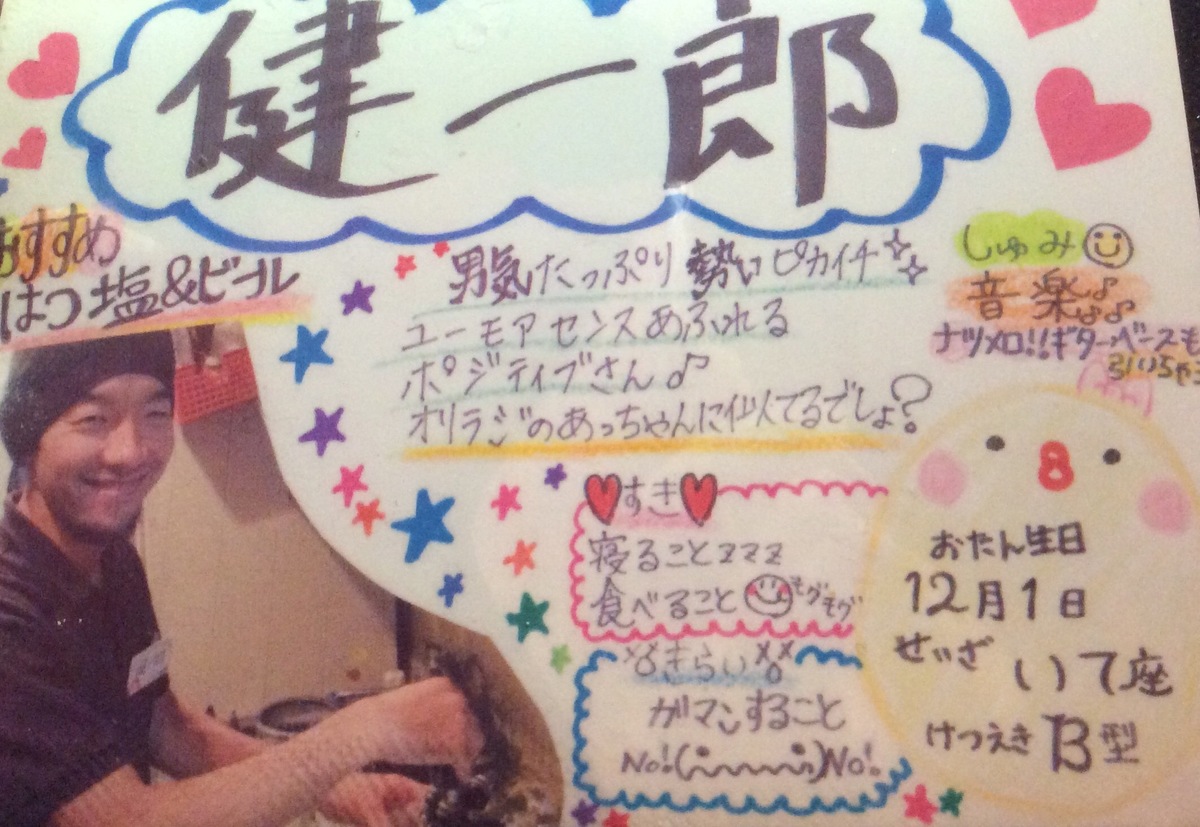 健一郎
おすすめ
はつ塩&ビール
男気たっぷり勢いピカイチ
ユーモアセンスあふれる
ポジティブさん♪
オリラジのあっちゃんに似てるでしょ?
しゅみ
音楽♪♪♪
ナツメロ!!ギターベースも
引いちゃう
すき
寝ることZZZZ
食べること モグモグ
きらい
ガマンすること
No! No!
おたん生日
12月1日
せいざ いて座
けつえき B型